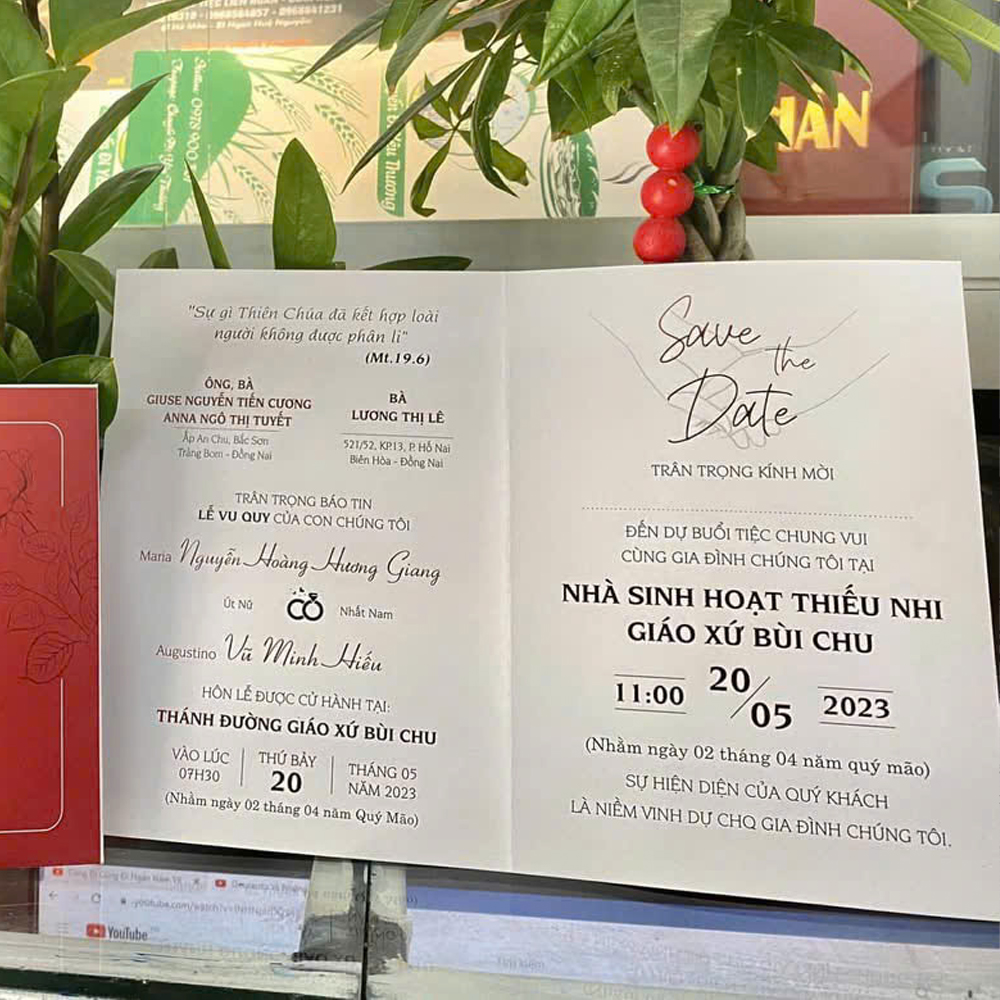 "Sự gì Thiên Chúa đã kết hợp loài
người không được phân li"
(Mt.19.6)
ÔNG, BÀ
GIUSE NGUYỄN TIẾN CƯƠNG
ANNA NGÔ THỊ TUYẾT
Ấp An Chu, Bắc Sơn
Trảng Bom - Đồng Nai
BÀ
LƯƠNG THỊ LÊ
521/52, KP.13, P. Hố Nai
Biên Hòa - Đồng Nai
TRÂN TRỌNG BÁO TIN
LỄ VU QUY CỦA CON CHÚNG TÔI
Maria Nguyễn Hoàng Hương Giang
Út Nữ Nhất Nam
Augustino Vũ Minh Hiếu
HÔN LỄ ĐƯỢC CỬ HÀNH TẠI:
THÁNH ĐƯỜNG GIÁO XỨ BÙI CHU
VÀO LÚC
07H30
THỨ BẢY
20
THÁNG 05
NĂM 2023
(Nhằm ngày 02 tháng 04 năm Quý Mão)
Save
the
Date
TRÂN TRỌNG KÍNH MỜI
ĐẾN DỰ BUỔI TIỆC CHUNG VUI
CÙNG GIA ĐÌNH CHÚNG TÔI TẠI
NHÀ SINH HOẠT THIẾU NHI
GIÁO XỨ BÙI CHU
11:00 20/05 2023
(Nhằm ngày 02 tháng 04 năm quý mão)
SỰ HIỆN DIỆN CỦA QUÝ KHÁCH
LÀ NIỀM VINH DỰ CHO GIA ĐÌNH CHÚNG TÔI.
YouTube